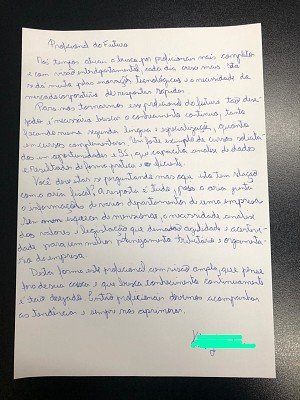 Profissional do Futuro
Nos tempos atuais a busca por profissionais mais completos
e com visão interdepartamental, cada dia cresce mais. Isto
se dá muito pelas inovações tecnológicas e a necessidade do
mercado corporativo de respostas rápidas.
Para nos tornarmos esse profissional do futuro tão dese-
jado é necessário buscar o conhecimento contínuo, tanto
focando numa segunda língua e especialização, quanto
em cursos complementares. Um forte exemplo de cursos
das em oportunidades é BI, que capacita analise de dados
e resultados de forma prática e eficiente.
Você deve estar se perguntando mas que isto tem relação
com a área fiscal? A resposta é tudo, pois a area junta
informações de varios departamentos de uma empresa
espaços de a necessidade analise
dos valores e legislação que demandam agilidade e acerti-
dade para um melhor planejamento tributário e orçamentá-
da empresa.
Desta forma este profissional com visão ampla, que pense
fora de sua caixa e que busca conhecimento continuamente
é tão desejado. Então profissionais devemos acompanhar
as tendências e sempre nos aprimorar.